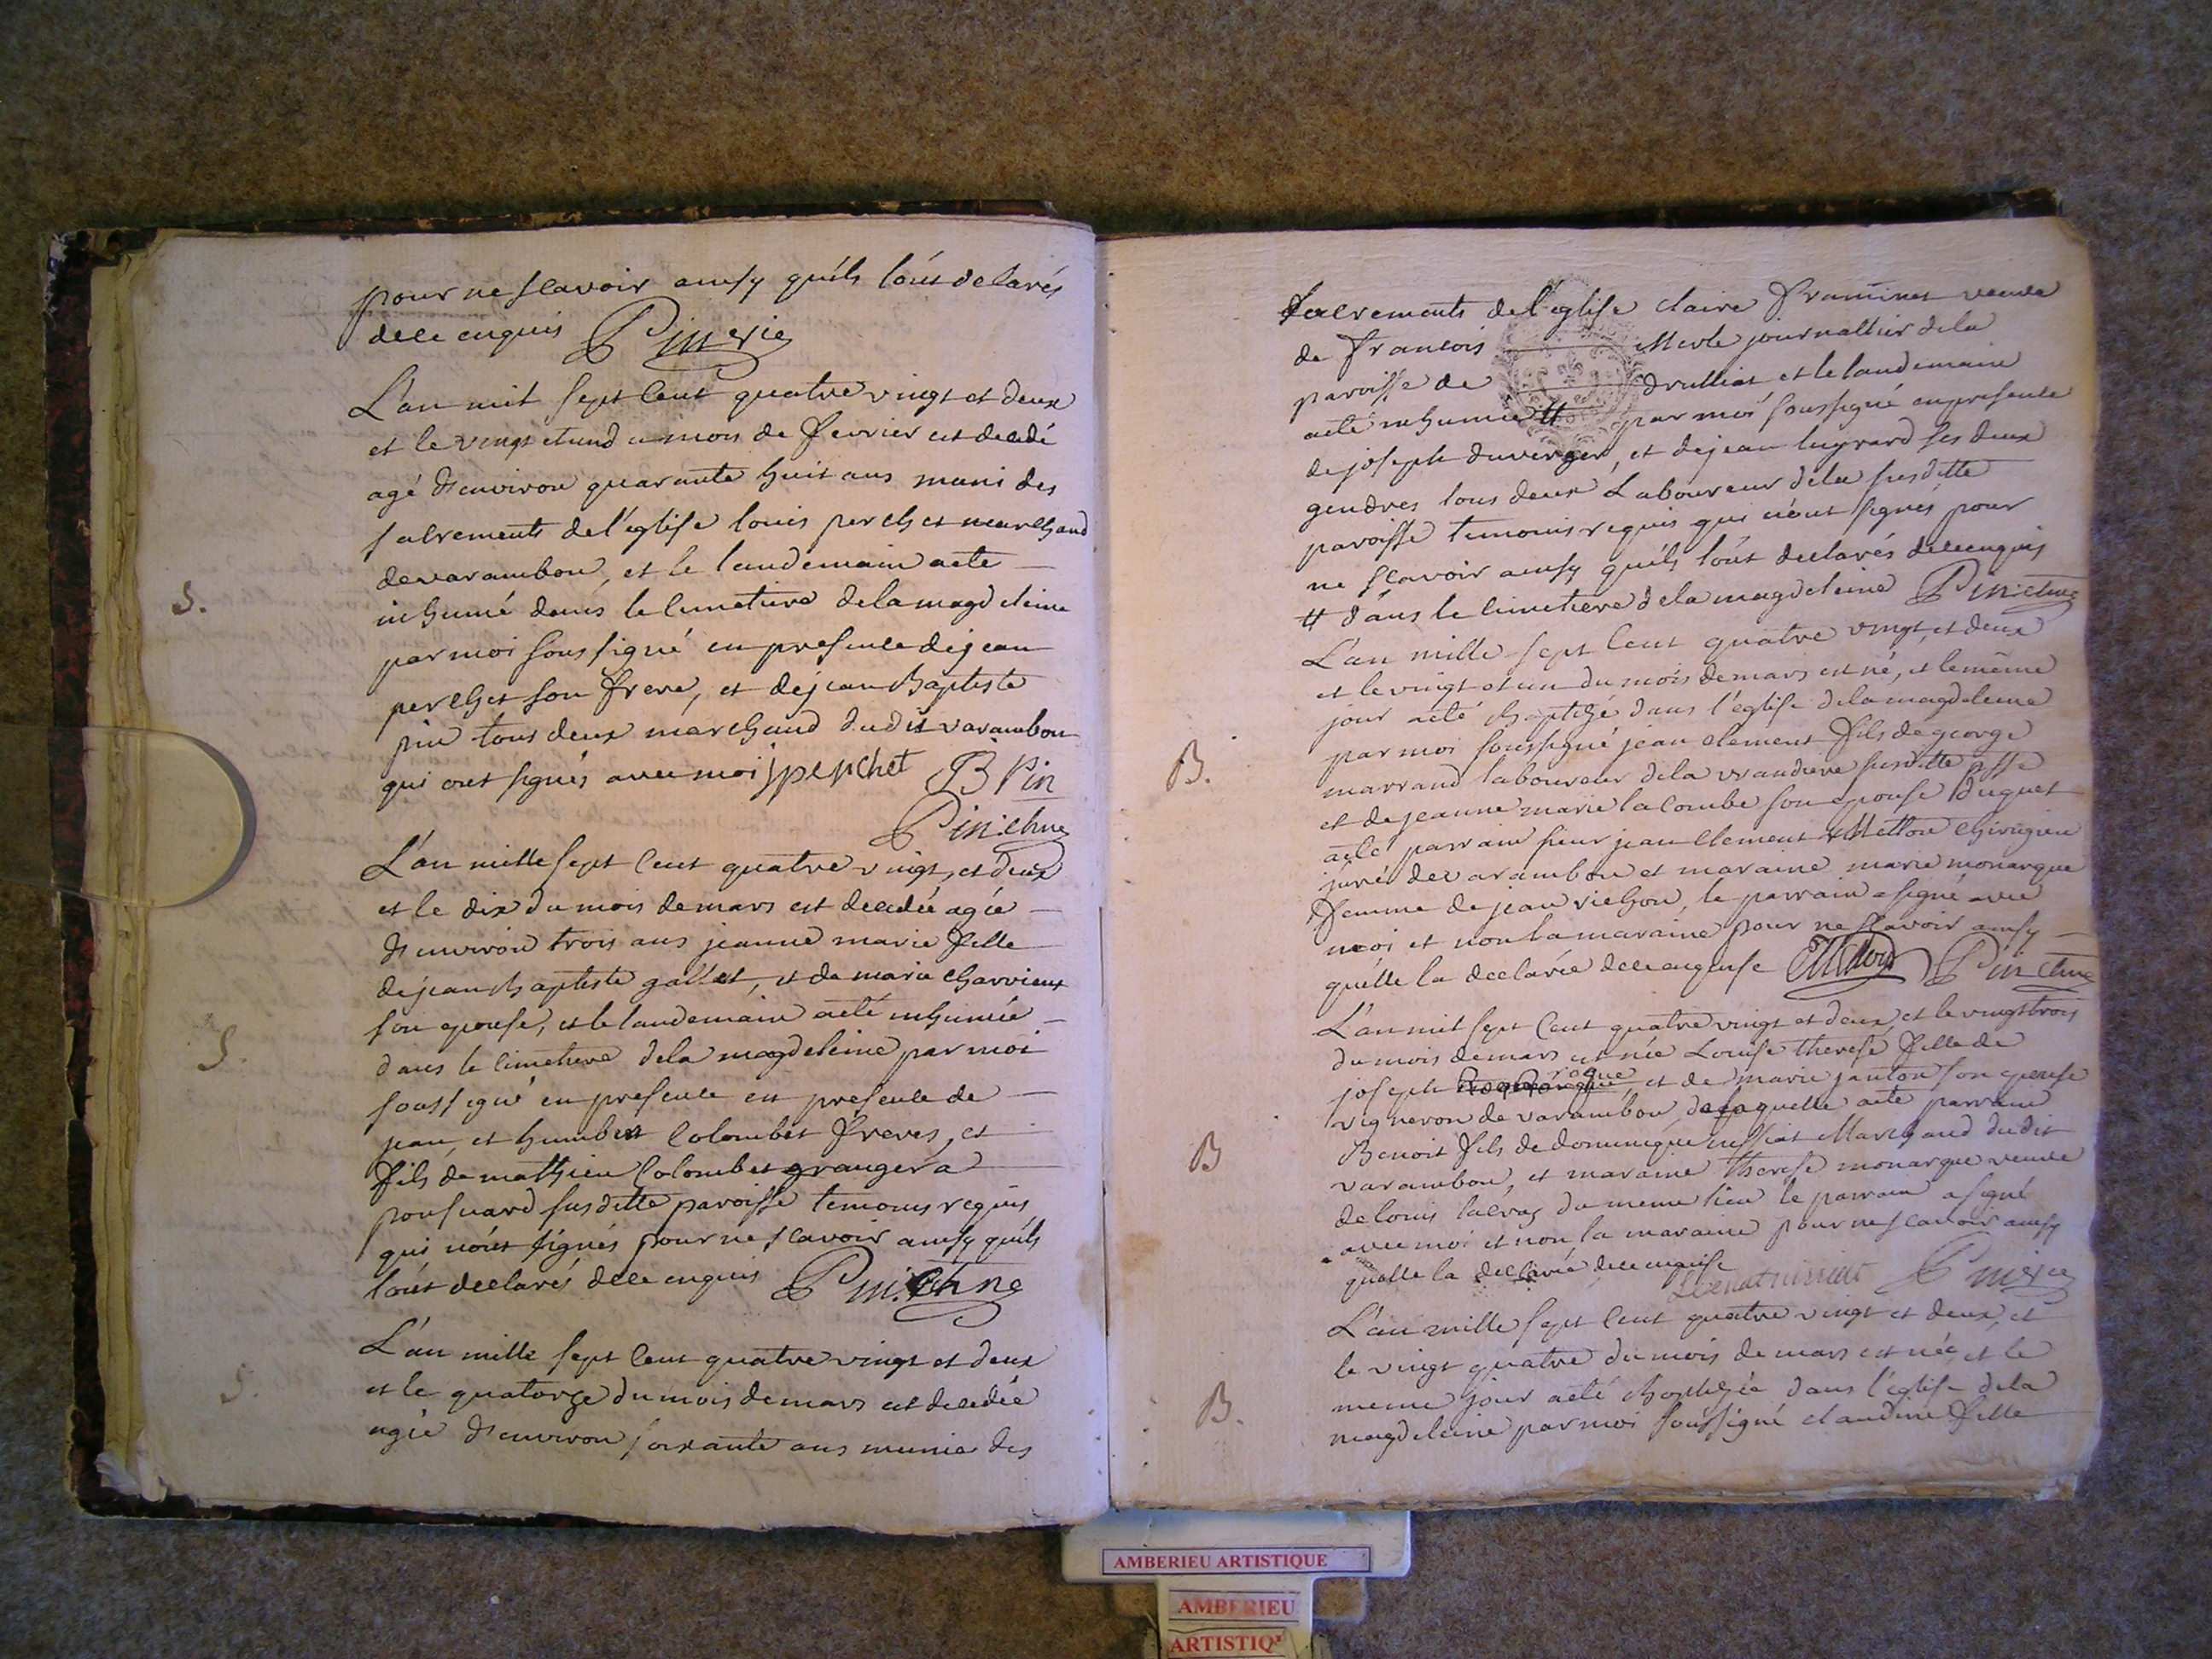 pour ne scavoir ainsy quils l'ont declarés
de ce enquis
L'an mil sept cent quatre vingt et deux
et le vingt et un du mois de fevrier est decedé
agé d'environ quarante huit ans muni des
sacrements de l'église louis perchet marchand
de varambon, et le landemain a eté
S.
inhumé dans le cimetiere de la magdeleine
par moi soussigné en presence de jean
perchet son frere, et de jean baptiste
pin tous deux marchand dudit varambon
qui ont signés avec moi j perchet B Pin
L'an mille sept cent quatre vingt, et deux
et le dix du mois de mars est decedée agée
d'environ trois ans jeanne marie fille
de jean baptiste gallet, et de marie charvieux
son epouse, et le landemain a eté inhumée
S.
dans le cimetiere de la magdeleine par moi
soussigné en presence en presence de
jean, et humbert Colombet freres, et
fils de mathieu Colombet granger a
susditte paroisse temoins requis
qui n'ont signés pour ne scavoir ainsy quils
l'ont declarés de ce enquis
L'an mille sept cent quatre vingt et deux
S.
et le quatorze du mois de mars est decedée
agée d'environ soixante ans munie des
sacrements de l'église claire veuve
de francois Merle journallier de la
paroisse de druillat et le landemain
a eté inhumée # par moi soussigné en presence
de joseph duverger, et de jean lugrard ses deux
gendres tous deux Laboureur de la susditte
paroisse temoins requis qui n'ont signés pour
ne scavoir ainsy quils l'ont declarés de ce enquis
# dans le cimetiere de la magdeleine
L'an mille sept cent quatre vingt, et deux
et le vingt et un du mois de mars est né, et le même
jour a eté baptizé dans l'église de la magdeleine
B.
par moi soussigné jean clement fils de george
marrand laboureur de la susditte psse
et de jeanne marie la combe son epouse duquel
a eté parrain sieur jean clement Mellon chirugien
juré de varambon et maraine marie monarque
femme de jean vichon, le parrain a signé avec
moi et non la maraine pour ne scavoir ainsy
quelle la declarée de ce enquise
L'an mil sept cent quatre vingt et deux, et le vingt trois
du mois de mars est née Louise therese fille de
joseph roque, et de marie janton son epouse
vigneron de varambon, de laquelle a eté parrain
B
Benoit fils de dominique Marchand dudit
varambon, et maraine therese monarque veuve
de louis du meme lieu le parrain a signé
avec moi et non la maraine pour ne scavoir ainsy
quelle la declarée de ce enquise
L'an mille sept cent quatre vingt et deux, et
le vingt quatre du mois de mars est née, et le
B.
meme jour a eté baptizée dans l'église de la
magdeleine par moi soussigné claudine fille
AMBERIEU ARTISTIQUE
AMBERIEU
ARTISTIQ